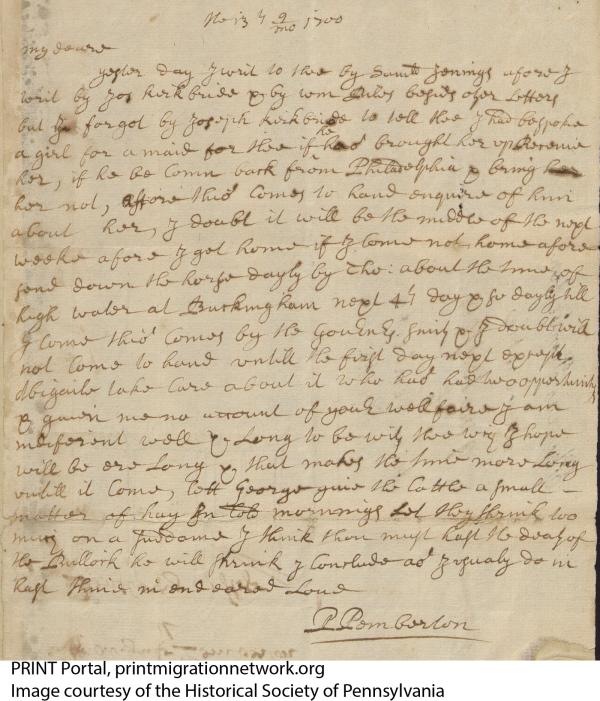 the 13th 9/mo 1700
my deare
yester day I writ to thee by Samll Jenings afore I
writ by Jos kirkbride & by wm Biles besids other Letters
but I forgot by Joseph kirkbride to tell thee I had bespoke
a girl for a maid for thee if he has brought her up Receive
her, if he be Comn back from Philadelphia & bring her
her not, affore this Comes to hand enquire of him
about her, I doubt it will be the middle of the next
weeke afore I get home if I Come not home afore
send down the horse dayly by Tho: about the time of
high water at Buckingham next 4th day & so dayly till
I Come this Comes by the Gouernrs & I doubt will
not Come to hand untill the first day next except
Abigaile take Care about it who has had two oppertunitys
& given me no account of your wellfaire I am
indiferent well & Long to be with thee wch I hope
will be ere Long & that makes the time more Long
untill it Come, lett George give the Cattle a small
matter of hay In the mornings Let they shrink too
much on a suddaine I think thou must hast the death of
the Bullock he will shrink I Conclude as I usualy do in
hast thine in endeared Love
P Pemberton
PRINT Portal, printmigrationnetwork.org
Image courtesy of the Historical Society of Pennsylvania